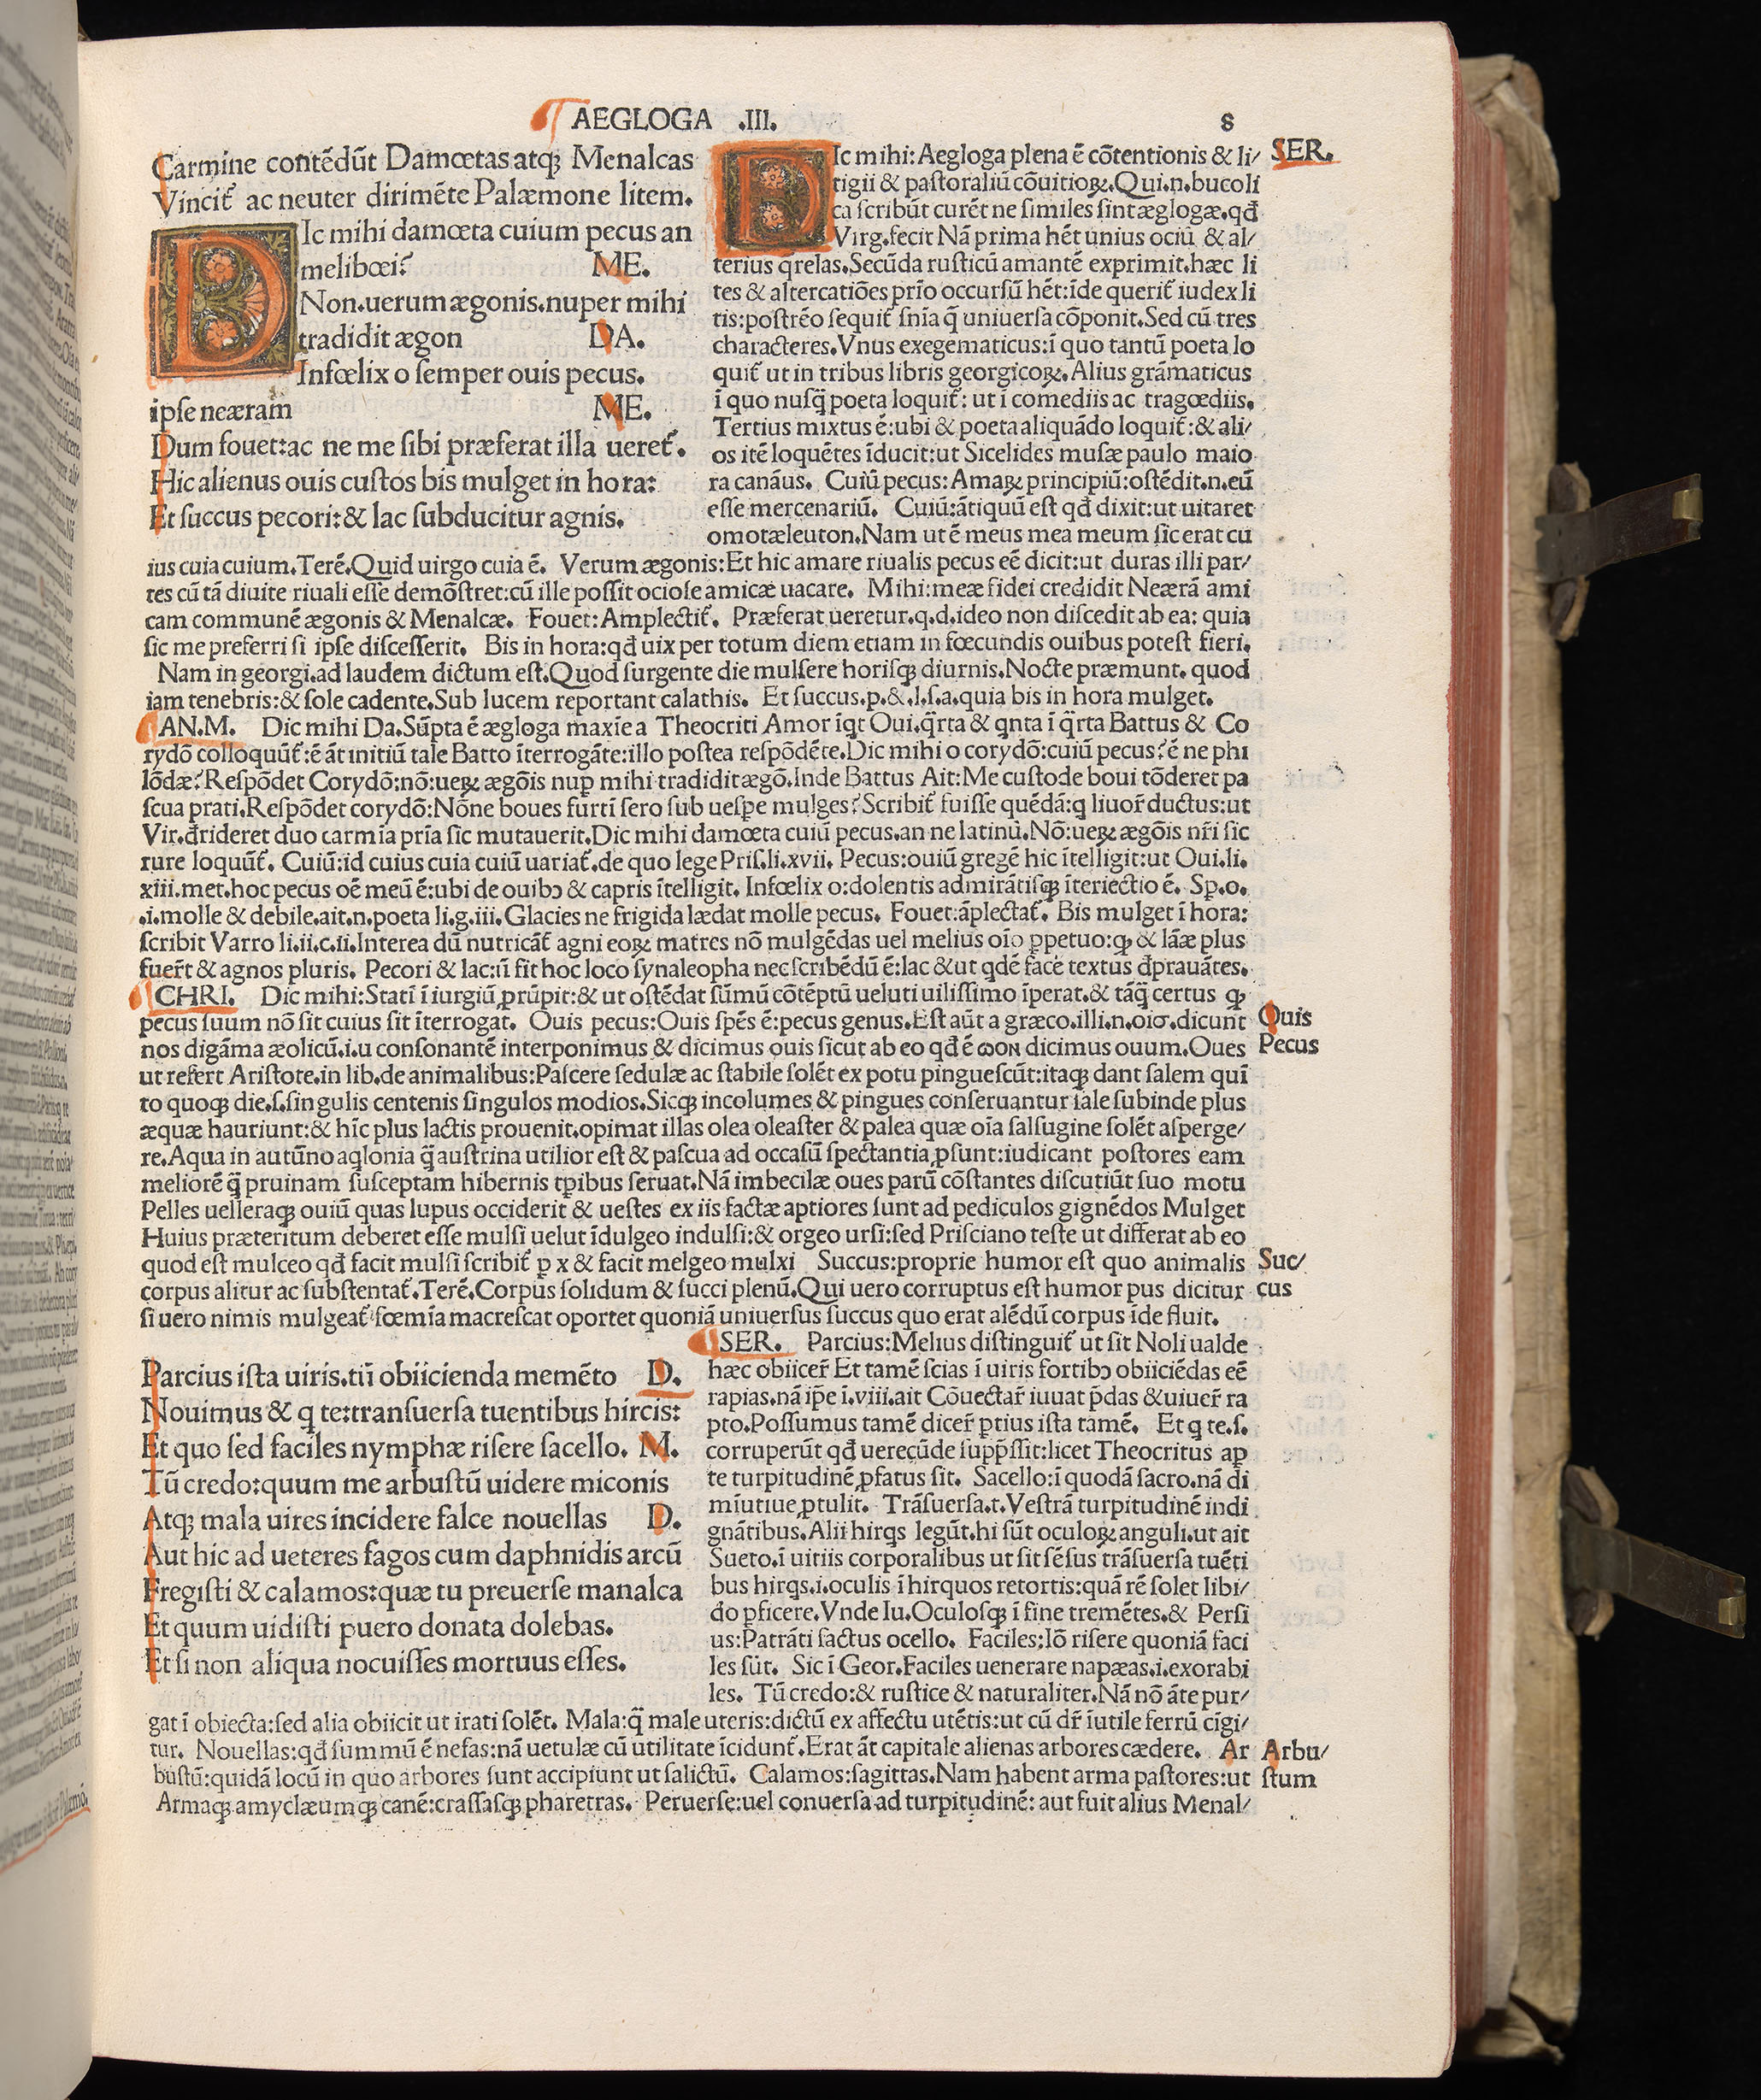 AEGLOGA .III. 8
Carmine contēdūt Damœtas atq; Menalcas
Vincit̃ ac neuter dirimēte Palæmone litem.
DIc mihi damœta cuium pecus an
melibœi? ME.
Non.uerum ægonis.nuper mihi
tradidit ægon DA.
Infœlix o semper ouis pecus.
ipse neæram ME.
Dum fouet:ac ne me sibi præferat illa ueret̃.
Hic alienus ouis custos bis mulget in hora:
Et succus pecori:& lac subducitur agnis.
SER.
DIc mihi:Aegloga plena ē cōtentionis & li/
tigii & pastoraliū cōuitioꝝ.Qui.n.bucoli
ca scribūt curēt ne similes sint æglogæ.qđ
Virg.fecit Nā prima hēt unius ociū & al/
terius q̄relas.Secūda rusticū amantē exprimit.hæc li
tes & altercatiōes prīo occursū hēt:īde querit̃ iudex li
tis:postrēo sequit̃ snīa q̄ uniuersa cōponit.Sed cū tres
characteres.Vnus exegematicus:ī quo tantū poeta lo
quit̃ ut in tribus libris georgicoꝝ.Alius grāmaticus
ī quo nusq̄ poeta loquit̃: ut ī comediis ac tragœdiis.
Tertius mixtus ē:ubi & poeta aliquādo loquit̃:& ali/
os itē loquētes īducit:ut Sicelides musæ paulo maio
ra canāus. Cuiū pecus:Amaꝝ principiū:ostēdit.n.eū
esse mercenariū. Cuiū:ātiquū est qđ dixit:ut uitaret
omotæleuton.Nam ut ē meus mea meum sic erat cu
ius cuia cuium.Terē.Quid uirgo cuia ē. Verum ægonis:Et hic amare riualis pecus eē dicit:ut duras illi par/
tes cū tā diuite riuali esse demōstret:cū ille possit ociose amicæ uacare. Mihi:meæ fidei credidit Neærā ami
cam communē ægonis & Menalcæ. Fouet:Amplectit̃. Præferat ueretur.q.d.ideo non discedit ab ea: quia
sic me preferri si ipse discesserit. Bis in hora:qđ uix per totum diem etiam in fœcundis ouibus potest fieri.
Nam in georgi.ad laudem dictum est.Quod surgente die mulsere horisq; diurnis.Nocte præmunt. quod
iam tenebris:& sole cadente.Sub lucem reportant calathis. Et succus.p.&.l.s.a.quia bis in hora mulget.
AN.M. Dic mihi Da.Sūpta ē ægloga maxīe a Theocriti Amor īqt Oui.q̄rta & qnta ī q̄rta Battus & Co
rydō colloquūt̃:ē āt initiū tale Batto īterrogāte:illo postea respōdēte.Dic mihi o corydō:cuiū pecus?ē ne phi
lōdæ?Respōdet Corydō:nō:ueꝝ ægōis nup̱ mihi tradidit ægō.Inde Battus Ait:Me custode boui tōderet pa
scua prati.Respōdet corydō:Nōne boues furtī sero sub uesp̱e mulges?Scribit̃ fuisse quēdā:q liuor̃ ductus:ut
Vir.đrideret duo carmīa prīa sic mutauerit.Dic mihi damœta cuiū pecus.an ne latinū.Nō:ueꝝ ægōis nr̄i sic
rure loquūt̃. Cuiū:id cuius cuia cuiū uariat̃.de quo lege Pris.li.xvii. Pecus:ouiū gregē hic ītelligit:ut Oui.li.
xiii.met.hoc pecus oē meū ē:ubi de ouibɔ & capris ītelligit. Infœlix o:dolentis admirātisq; īteriectio ē. Sp̱.o.
.i.molle & debile.ait.n.poeta li.g.iii.Glacies ne frigida lædat molle pecus. Fouet:āplectat̃. Bis mulget ī hora:
scribit Varro li.ii.c.ii.Interea dū nutricāt̃ agni eoꝝ matres nō mulgēdas uel melius oīo p̱petuo:q; & lāæ plus
fuer̃t & agnos pluris. Pecori & lac:ıı̄ fit hoc loco synaleopha nec scribēdū ē:lac &ut qdē face textus đprauātes.
CHRI. Dic mihi:Statī ī iurgiū ꝓrūpit:& ut ostēdat sūmū cōtēptū ueluti uilissimo īperat.& tāq̄ certus q;
pecus suum nō sit cuius sit īterrogat. Ouis pecus:Ouis spēs ē:pecus genus.Est aūt a græco.illi.n.οισ.dicunt Ouis
nos digāma æolicū.i.u consonantē interponimus & dicimus ouis sicut ab eo qđ ē ωον dicimus ouum.Oues Pecus
ut refert Aristote.in lib.de animalibus:Pascere sedulæ ac stabile solēt ex potu pinguescūt:itaq; dant salem quī
to quoq; die.s.singulis centenis singulos modios.Sicq; incolumes & pingues conseruantur sale subinde plus
æquæ hauriunt:& hīc plus lactis prouenit.opimat illas olea oleaster & palea quæ oīa salsugine solēt asperge/
re.Aqua in autūno aqlonia q̄ austrina utilior est & pascua ad occasū spectantia ꝓsunt:iudicant postores eam
meliorē q̄ pruinam susceptam hibernis tp̱ibus seruat.Nā imbecilæ oues parū cōstantes discutiūt suo motu
Pelles uelleraq; ouiū quas lupus occiderit & uestes ex iis factæ aptiores sunt ad pediculos gignēdos Mulget
Huius præteritum deberet esse mulsi uelut īdulgeo indulsi:& orgeo ursi:sed Prisciano teste ut differat ab eo
quod est mulceo qđ facit mulsi scribit̃ p̱ x & facit melgeo mulxi Succus:proprie humor est quo animalis Suc/
corpus alitur ac substentat̃.Terē.Corpus solidum & succi plenū.Qui uero corruptus est humor pus dicitur cus
si uero nimis mulgeat̃ fœmīa macrescat oportet quoniā uniuersus succus quo erat alēdū corpus īde fluit.
Parcius ista uiris.tū obiicienda memēto D.
Nouimus & q te:transuersa tuentibus hircis:
Et quo sed faciles nymphæ risere sacello. M.
Tū credo:quum me arbustū uidere miconis
Atq; mala uires incidere falce nouellas D.
Aut hic ad ueteres fagos cum daphnidis arcū
Fregisti & calamos:quæ tu preuerse manalca
Et quum uidisti puero donata dolebas.
Et si non aliqua nocuisses mortuus esses.
SER. Parcius:Melius distinguit̃ ut sit Noli ualde
hæc obiicer̃ Et tamē scias ī uiris fortibɔ obiiciēdas eē
rapias.nā ip̄e ī.viii.ait Cōuectar̃ iuuat p̄das &uiuer̃ ra
pto.Possumus tamē dicer̃ p̱tius ista tamē. Et q te.s.
corruperūt qđ uerecūde supp̄ssit:licet Theocritus ap̱
te turpitudinē ꝓfatus sit. Sacello:ī quodā sacro.nā di
mīutiue ꝓtulit. Trāsuersa.t.Vestrā turpitudinē indi
gnātibus.Alii hirqs legūt.hi sūt oculoꝝ anguli.ut ait
Sueto.ī uitiis corporalibus ut sit sēsus trāsuersa tuēti
bus hirqs.i.oculis ī hirquos retortis:quā rē solet libi/
do p̱ficere.Vnde Iu.Oculosq; ī fine tremētes.& Persi
us:Patrāti factus ocello. Faciles:Iō risere quoniā faci
les sūt. Sic ī Geor.Faciles uenerare napæas.i.exorabi
les. Tū credo:& rustice & naturaliter.Nā nō āte pur/
gat ī obiecta:sed alia obiicit ut irati solēt. Mala:q̄ male uteris:dictū ex affectu utētis:ut cū dr̄ īutile ferrū cīgi/
tur. Nouellas:qđ summū ē nefas:nā uetulæ cū utilitate īcidunt̃.Erat āt capitale alienas arbores cædere. Ar Arbu/
bustū:quidā locū in quo arbores sunt accipiunt ut salictū. Calamos:sagittas.Nam habent arma pastores:ut stum
Armaq; amyclæumq; canē:crassasq; pharetras. Peruerse:uel conuersa ad turpitudinē: aut fuit alius Menal/